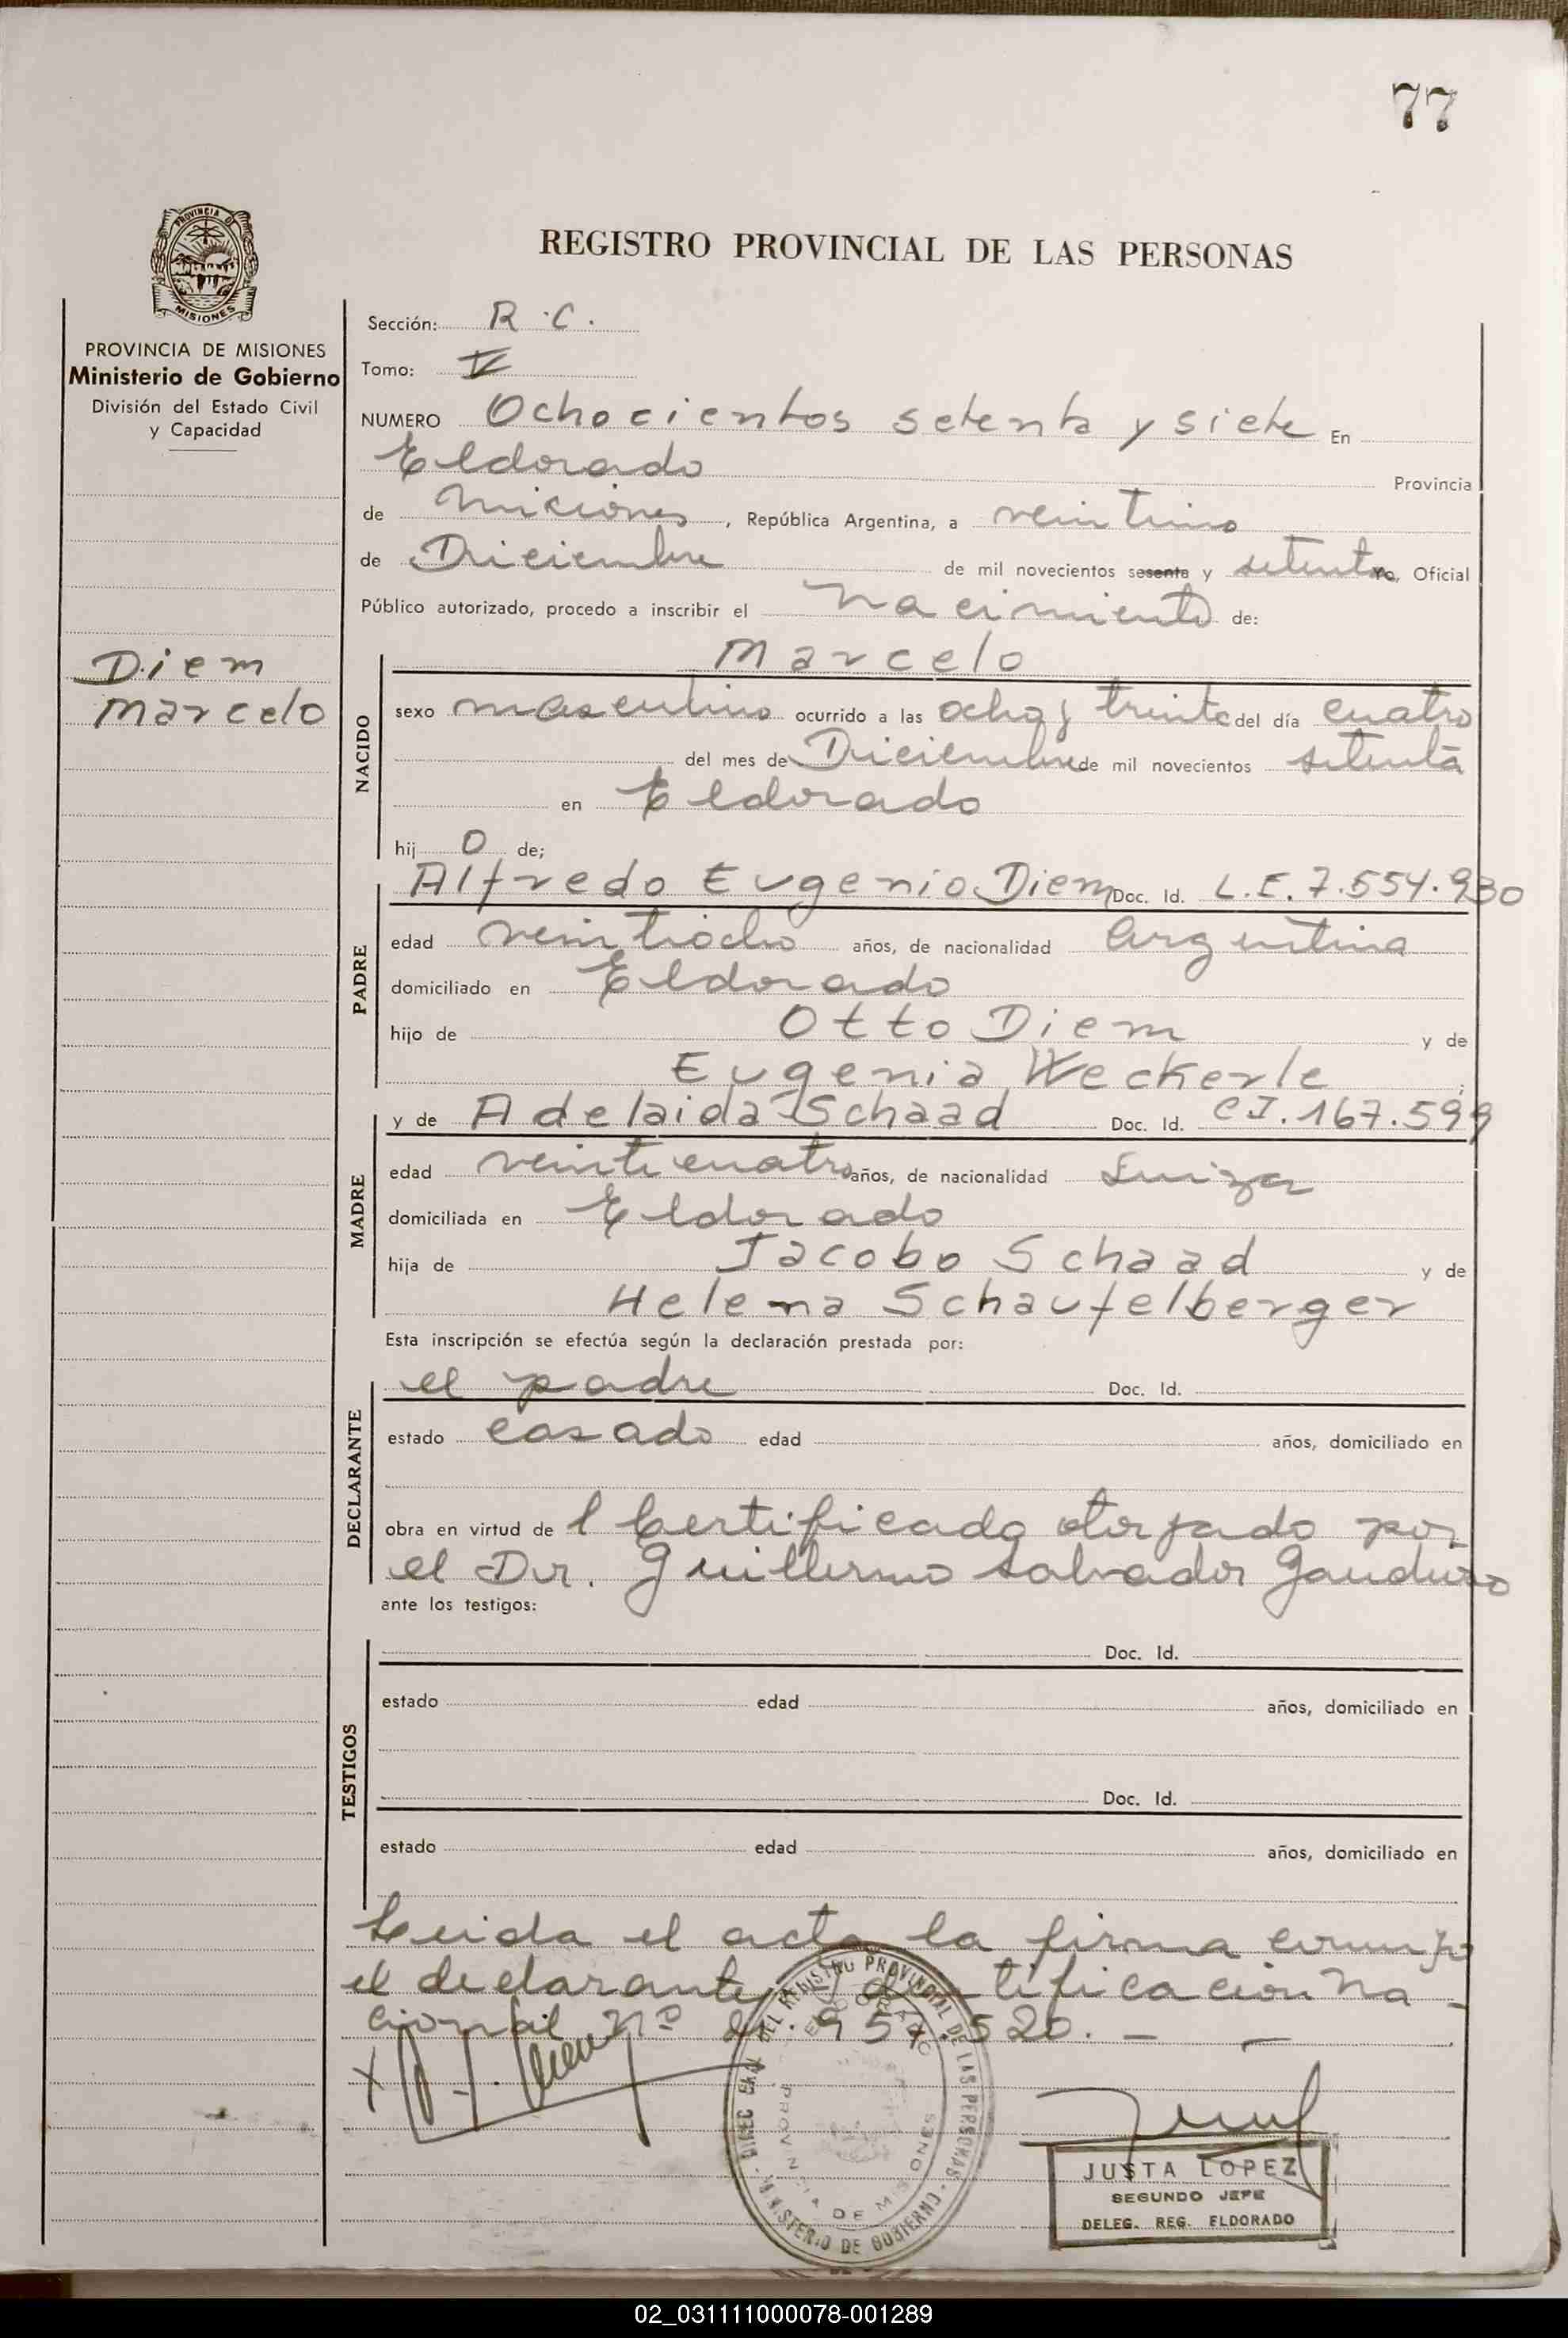 77
PROVINCIA DE
MISIONES
REGISTRO PROVINCIAL DE LAS PERSONAS
PROVINCIA DE MISIONES
Ministerio de Gobierno
División del Estado Civil
y Capacidad
Diem
Marcelo
Sección: R.C.
Tomo: V
NUMERO Ochocientos setenta y siete En
Eldorado Provincia
de Miciones, República Argentina, a veintiuno
de Diciembre de mil novecientos sesenta y setenta yo, Oficial
Público autorizado, procedo a inscribir el nacimiento de:
NACIDO
Marcelo
sexo masculino ocurrido a las ocho y treinta del día cuatro
del mes de Diciembre de mil novecientos setenta
en Eldorado
hij o de;
PADRE
Alfredo Eugenio Diem Doc. Id. L.E. 7.554.930
edad veintiocho años, de nacionalidad Argentina
domiciliado en Eldorado
hijo de Otto Diem y de
Eugenia Weckerle;
MADRE
y de Adelaida Schaad Doc. Id. CI. 167.599
edad veinticuatro años, de nacionalidad Suiza
domiciliada en Eldorado
hija de Jacobo Schaad y de
Helena Schaufelberger
Esta inscripción se efectúa según la declaración prestada por:
DECLARANTE
el padre Doc. Id.
estado casado edad años, domiciliado en
obra en virtud de l Certificado otorgado por
el Dr. Guillermo Salvador
ante los testigos:
TESTIGOS
Doc. Id.
estado edad años, domiciliado en
Doc. Id.
estado edad años, domiciliado en
Leida el acta la firma conmigo
el declarante, tificación Na-
cional nº 520. —
X
DEL REGISTRO PROVINCIAL DE LAS PERSONAS - MINISTERIO DE GOBIERNO
ELDORADO
PROVINCIA DE MISIONES
JUSTA LOPEZ
SEGUNDO JEFE
DELEG. REG. ELDORADO
02_031111000078-001289